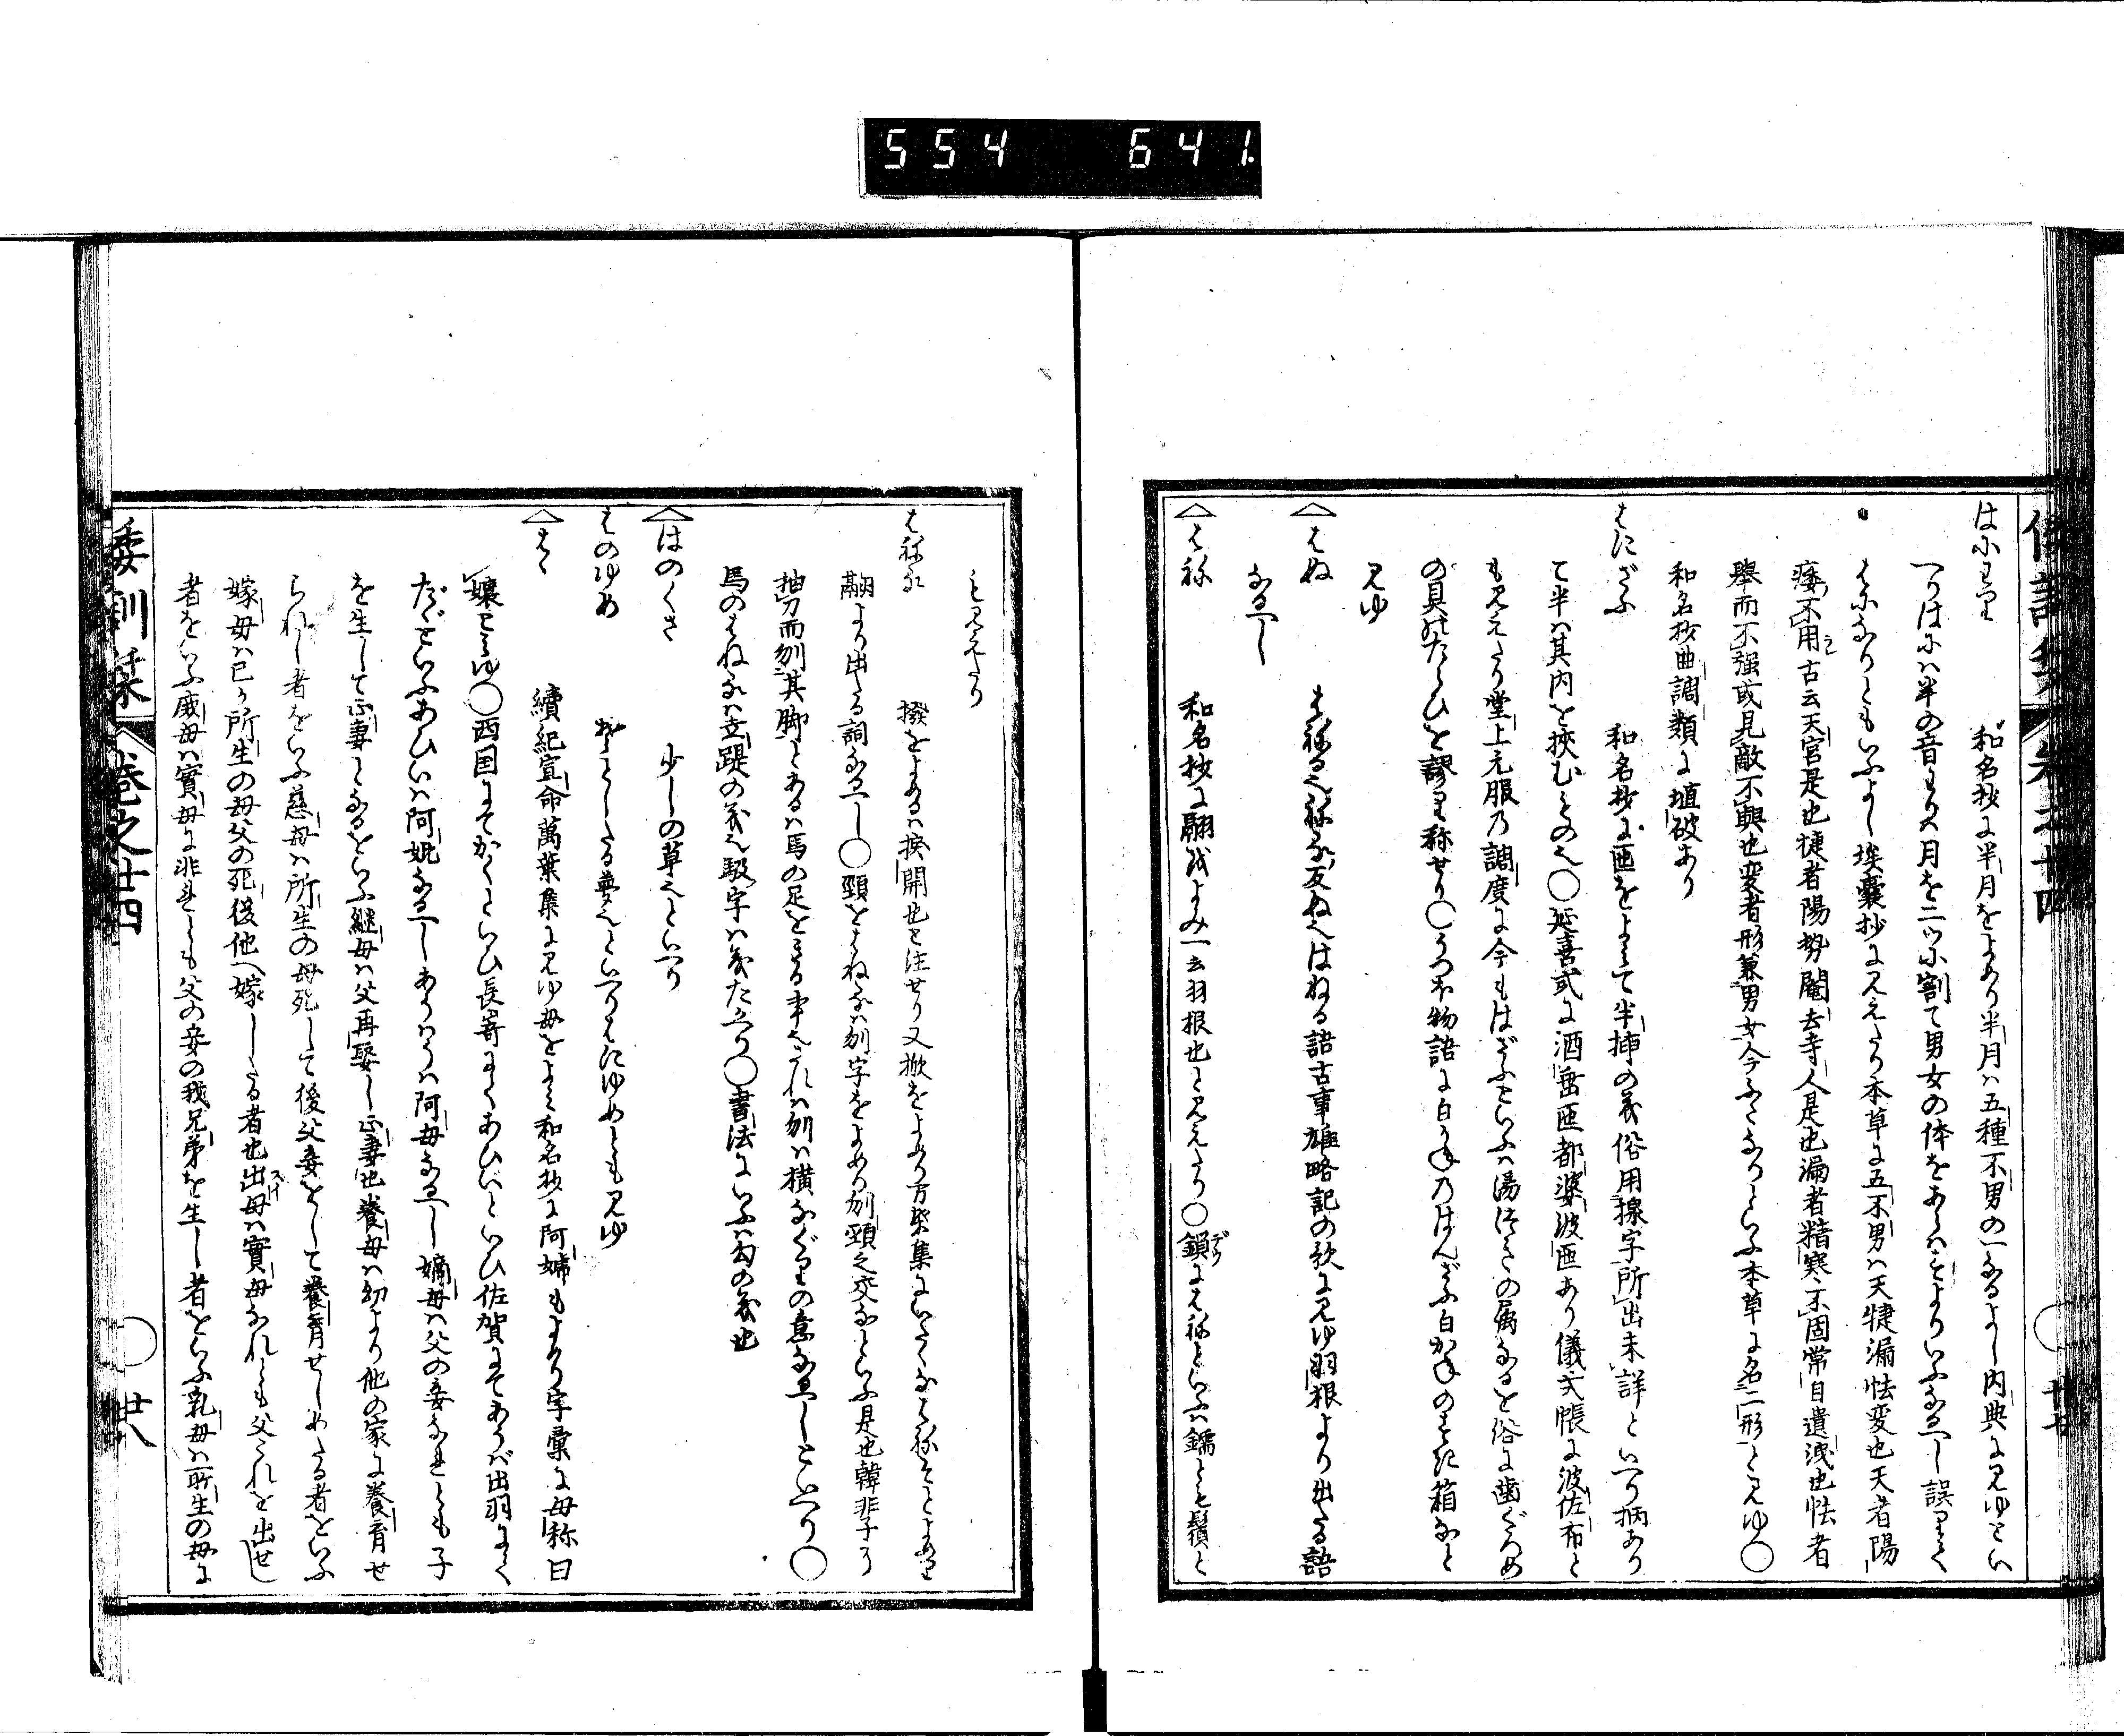 554 641.
はにわり 和名抄に半月をよめり半月ハ五種不男の一なるよし内典に見ゆとい
へりはにハ半の音わり又月を二ツに割て男女の体をあらハすよりいふなるへし誤りて
はになりともいふよし埃嚢抄に見えたり本草に五不男ハ天犍漏怯変也天者陽
痿不用古云天宮是也犍者陽勢閹去寺人是也漏者精寒不固常自遺洩也怯者
擧而不强或見敵不興也変者形兼男女今ふたなりといふ本草に名二形と見ゆ○
和名抄曲調類に埴破あり
はにざふ 和名抄に匜をよみて半挿の義俗用楾字所出未詳といへり柄あり
て半ハ其内を挾むもの也○延喜式に酒缶匜都婆波匜あり儀式帳に波佐布と
も見えたり堂上元服乃調度に今もはざふといふハ湯つきの属なるを俗に歯ぐろめ
の具のたらひを謬り称せり○うつほ物語に白かねのはんざふ白かねのすき箱なと
見ゆ
はぬ はねる也ねる反ぬ也はねる語古事雄略記の歌に見ゆ羽根より出たる語
なるへし
はね 和名抄に翮をよみ一云羽根也と見えたり○鎖にはねといふハ鐇とも鬚と
も見えたり
はねる 撥をよめるハ揆開也と注せり又撤をよめり万葉集にいたくなはねそとよめり
翮より出たる詞なるへし○頸をはねるハ刎字をよめり刎頸之交なといふ是也韓非子に
抽刀而刎其脚とあるハ馬の足をきる事也されハ刎ハ横なぐりの意なるへしといへり○
馬のはねるハ立踶の義也駁字ハ義たかへり○書法にいふハ勾の義也
はのくさ 少しの草也といへり
はのゆめ おそろしたる夢也といへりはにゆめとも見ゆ
はゝ 續紀宣命萬葉集に見ゆ母をよみ和名抄に阿嬭もよめり字彙に母称曰
嬢と見ゆ○西国にてかくといひ長嵜にてあひいといひ佐賀にてあうバ出羽にて
だゞといふあひいハ阿妣なるへしあうハうハ阿母なるへし嫡母ハ父の妾なれとも子
を生して正妻となるをいふ継母ハ父再娶し正妻也養母ハ幼より他の家に養育せ
られし者をいふ慈母ハ所生の母死して後父妾をして養育せしめたる者をいふ
嫁母ハ已か所生の母父の死後他へ嫁したる者也出母ハ實母なれとも父これを出せし
者をいふ庶母ハ實母に非れとも父の妾の我兄弟を生し者をいふ乳母ハ所生の母に
倭訓栞 巻之廿四 廿八